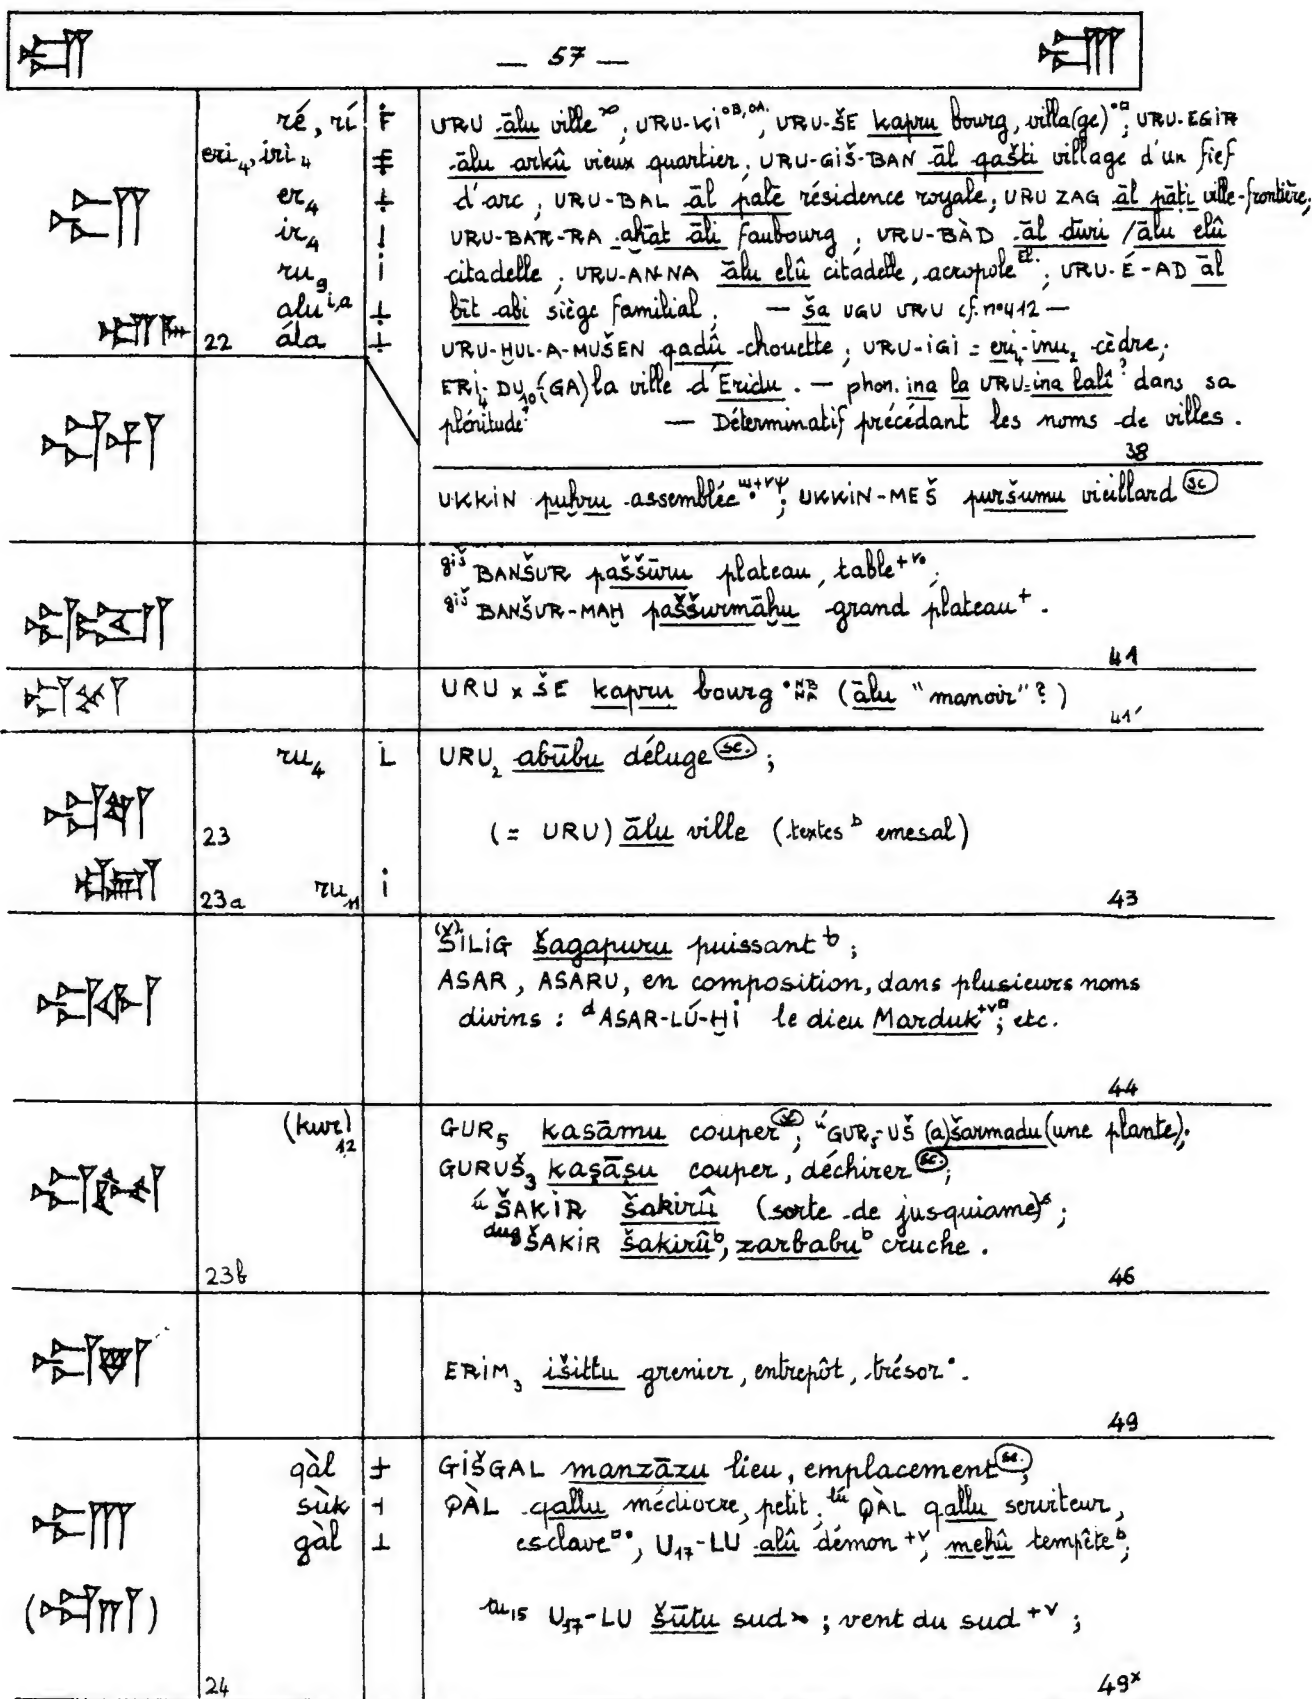 — 57 —
ré, rí F URU ālu ville, URU-KI OB, OA, URU-ŠE kapru bourg, villa(ge), URU-EGIR
eri₄, iri₄ ālu arkû vieux quartier, URU-GIŠ-BAN āl qašti village d'un fief
er₄ d'arc, URU-BAL āl palê résidence royale, URU ZAG āl pāṭi ville-frontière,
ir₄ URU-BAR-RA aḫāt āli faubourg, URU-BÀD āl dūri / ālu elû
ru₉ i citadelle, URU-AN-NA ālu elû citadelle, acropole El., URU-É-AD āl
alu i,a bīt abi siège familial. — ša UGU URU cf. n°412 —
22 ála URU-ḪUL-A-MUŠEN qadû chouette, URU-IGI = eri₄-inu₂ cèdre;
ERI₄-DU₁₀(GA) la ville d'Eridu. — phon. ina la URU = ina lalî? dans sa
plénitude? — Déterminatif précédant les noms de villes.
38
UKKIN puḫru assemblée; UKKIN-MEŠ puršumu vieillard sc
giš BANŠUR paššūru plateau, table;
giš BANŠUR-MAḪ paššurmāḫu grand plateau +.
41
URU x ŠE kapru bourg NB NA (ālu "manoir"?)
41'
ru₄ L URU₂ abūbu déluge sc.;
23 (= URU) ālu ville (textes b emesal)
23a ru₁₁ i 43
(š)ŠILIG šagapuru puissant b;
ASAR, ASARU, en composition, dans plusieurs noms
divins : d ASAR-LÚ-ḪI le dieu Marduk; etc.
44
(kur)₁₂ GUR₅ kasāmu couper sc, ú GUR₅-UŠ (a)šarmadu (une plante);
GURUŠ₃ kaṣāṣu couper, déchirer sc.;
ú ŠAKIR šakirû (sorte de jusquiame);
dug ŠAKIR šakirû b, zarbabu b cruche.
23b 46
ERIM₃ išittu grenier, entrepôt, trésor.
49
qàl GIŠGAL manzāzu lieu, emplacement sc.;
sùk QÀL qallu médiocre, petit, lú QÀL qallu serviteur,
gàl esclave, U₁₇-LU alû démon +v, meḫû tempête b;
tu₁₅ U₁₇-LU šūtu sud; vent du sud +v;
24 49x